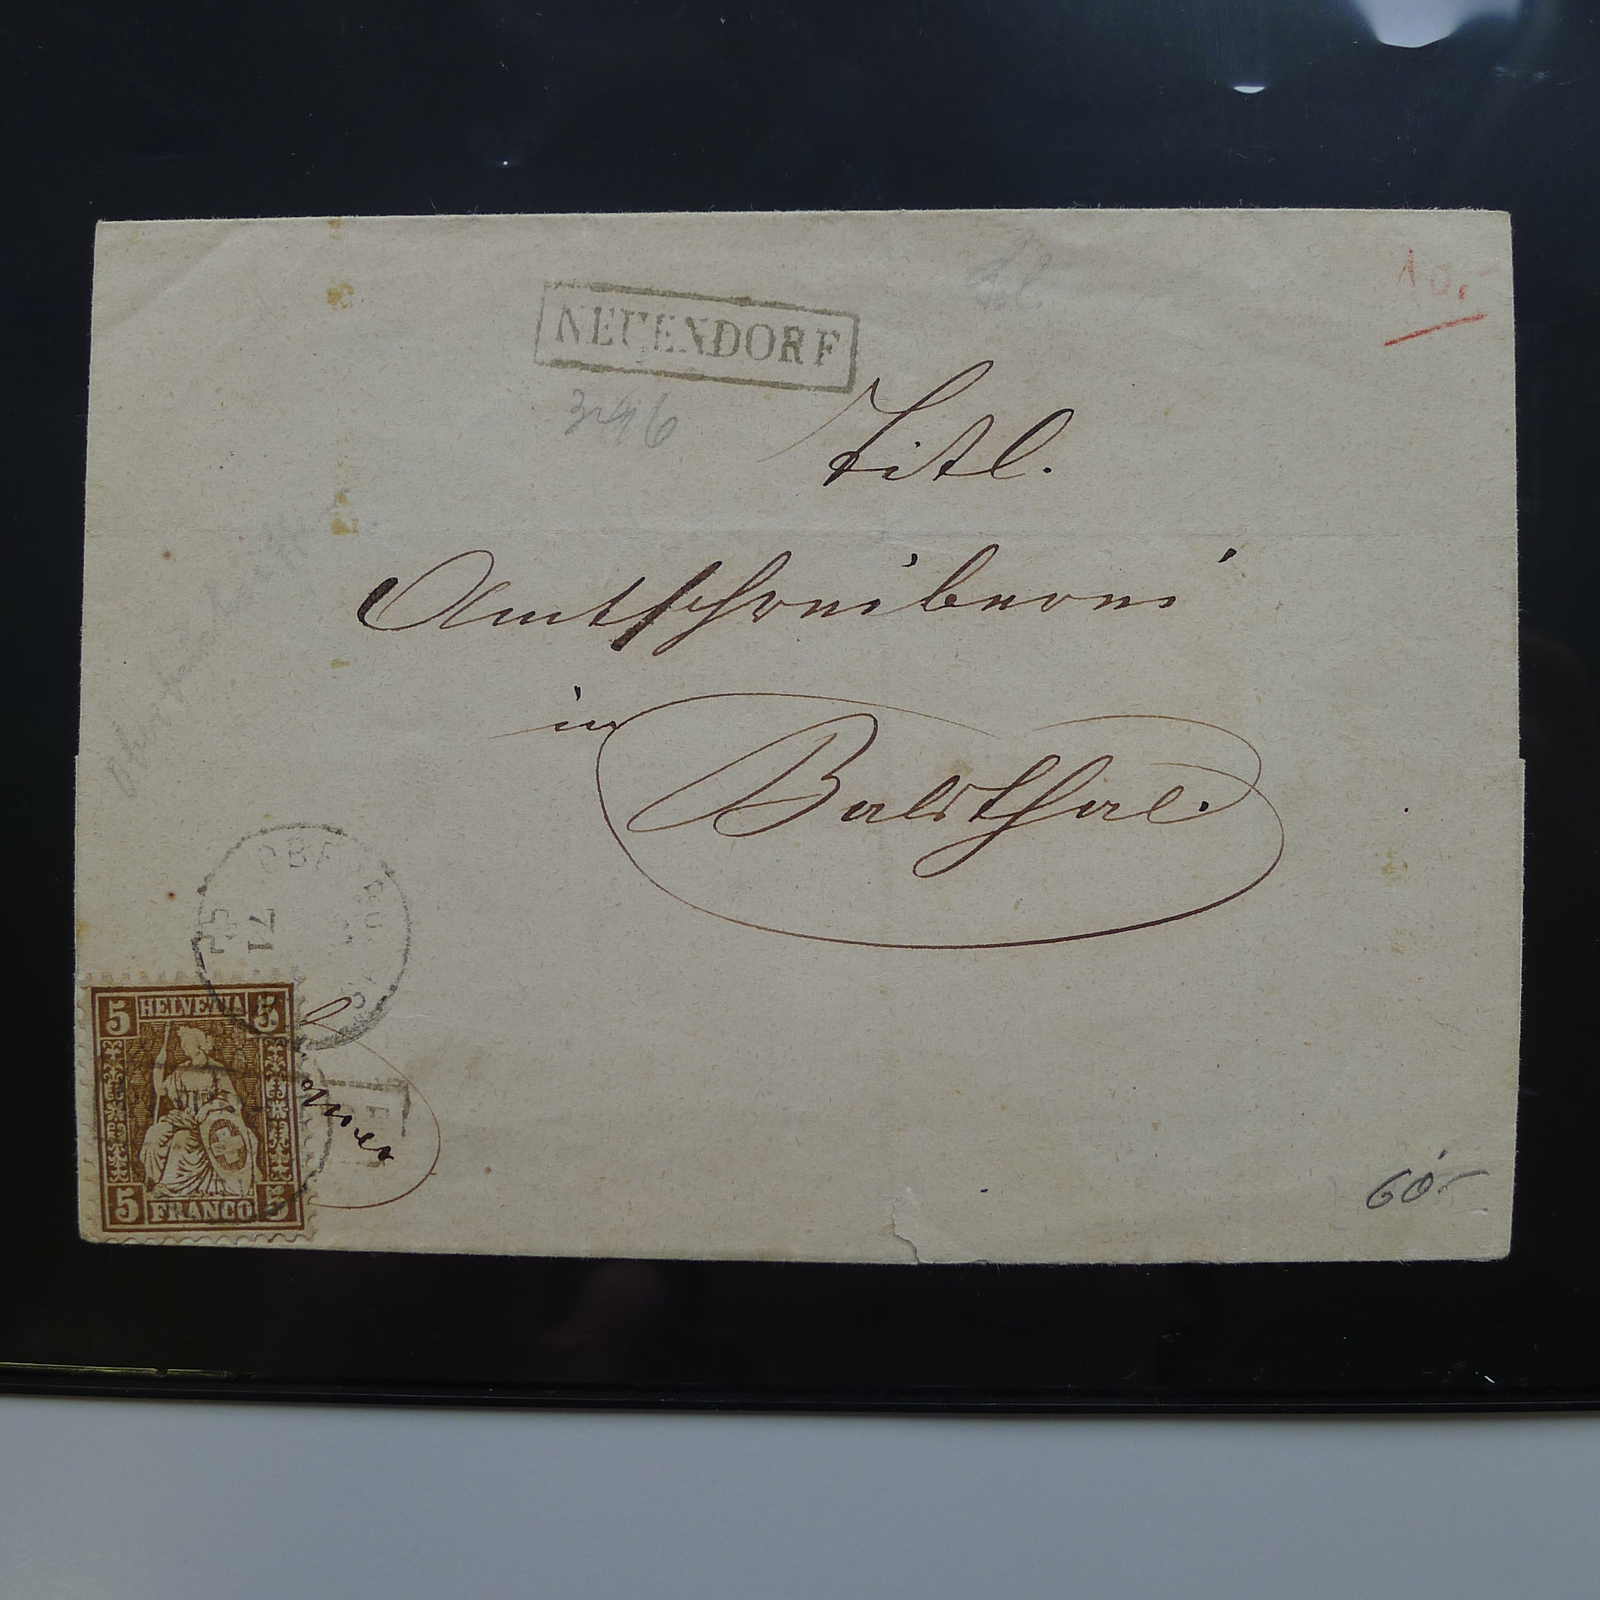 10.-
NEUENDORF
3296
Titl.
Amtschreiberei
in
Balsthal.
71
5 HELVETIA 5
5 FRANCO 5
60.-